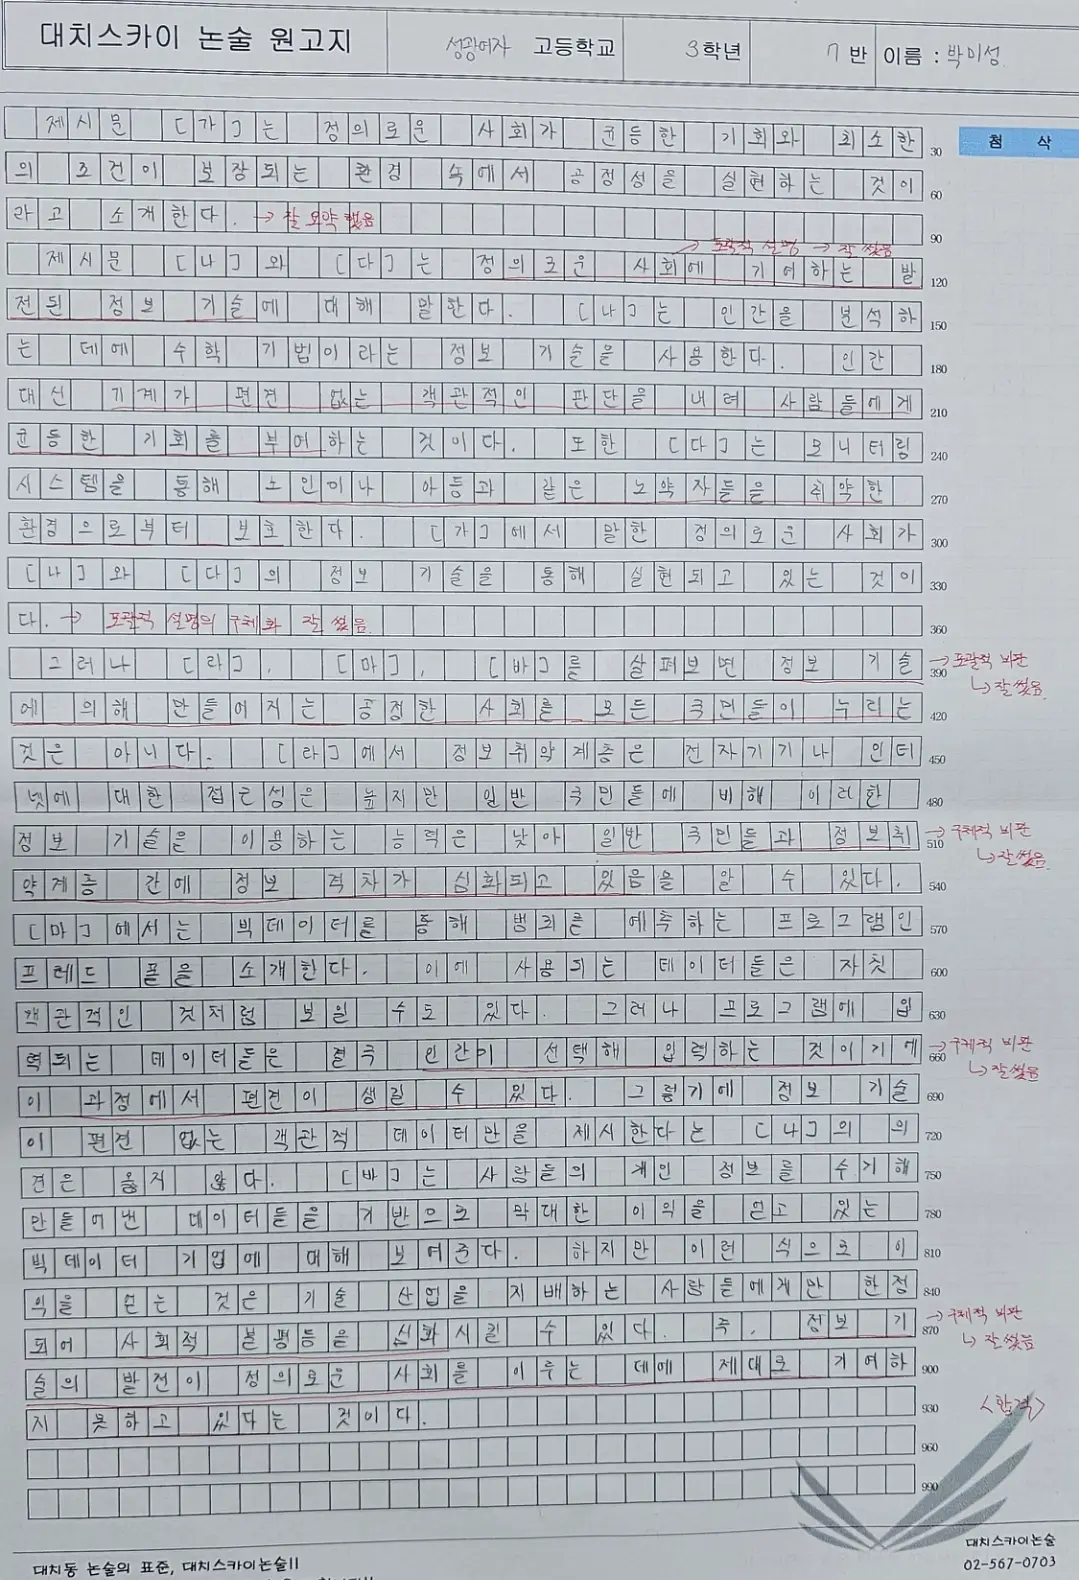 대치스카이 논술 원고지 성광여자 고등학교 3학년 7반 이름 : 박미성
첨 삭
제시문 [가]는 정의로운 사회가 균등한 기회와 최소한 30
의 조건이 보장되는 환경 속에서 공정성을 실현하는 것이 60
라고 소개한다. → 잘 요약했음 90
→ 포괄적 설명 → 잘 썼음
제시문 [나]와 [다]는 정의로운 사회에 기여하는 발 120
전된 정보 기술에 대해 말한다. [나]는 인간을 분석하 150
는 데에 수학 기법이라는 정보 기술을 사용한다. 인간 180
대신 기계가 편견 없는 객관적인 판단을 내려 사람들에게 210
균등한 기회를 부여하는 것이다. 또한 [다]는 모니터링 240
시스템을 통해 노인이나 아동과 같은 노약자들을 취약한 270
환경으로부터 보호한다. [가]에서 말한 정의로운 사회가 300
[나]와 [다]의 정보 기술을 통해 실현되고 있는 것이 330
다. → 포괄적 설명의 구체화 잘 썼음 360
그러나 [라], [마], [바]를 살펴보면 정보 기술 390 → 포괄적 비판
↳ 잘 썼음
에 의해 만들어지는 공정한 사회를 모든 국민들이 누리는 420
것은 아니다. [라]에서 정보취약계층은 전자기기나 인터 450
넷에 대한 접근성은 높지만 일반 국민들에 비해 이러한 480
정보 기술을 이용하는 능력은 낮아 일반 국민들과 정보취 510 → 구체적 비판
↳ 잘 썼음
약계층 간에 정보 격차가 심화되고 있음을 알 수 있다. 540
[마]에서는 빅데이터를 통해 범죄를 예측하는 프로그램인 570
프레드 폴을 소개한다. 이에 사용되는 데이터들은 자칫 600
객관적인 것처럼 보일 수도 있다. 그러나 프로그램에 입 630
력되는 데이터들은 결국 인간이 선택해 입력하는 것이기에 660 → 구체적 비판
↳ 잘 썼음
이 과정에서 편견이 생길 수 있다. 그렇기에 정보 기술 690
이 편견 없는 객관적 데이터만을 제시한다는 [나]의 의 720
견은 옳지 않다. [바]는 사람들의 개인 정보를 수기해 750
만들어낸 데이터들을 기반으로 막대한 이익을 얻고 있는 780
빅데이터 기업에 대해 보여준다. 하지만 이런 식으로 이 810
익을 얻는 것은 기술 산업을 지배하는 사람들에게만 한정 840
되어 사회적 불평등을 심화시킬 수 있다. 즉, 정보 기 870 → 구체적 비판
↳ 잘 썼음
술의 발전이 정의로운 사회를 이루는 데에 제대로 기여하 900
지 못하고 있다는 것이다. 930 <합격>
960
990
대치동 논술의 표준, 대치스카이논술!!
대치스카이논술
02-567-0703